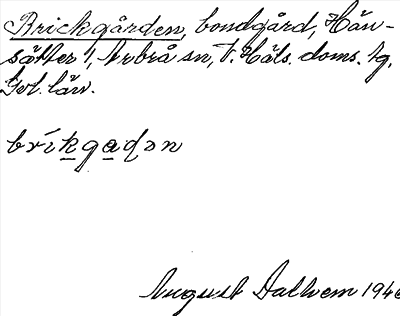 Brickgården, bondgård, Hän-
sätter 1, Arbrå sn, V. Häls. doms. tg.
Gvl. län.
bríkgadən
August Dalhem 1946